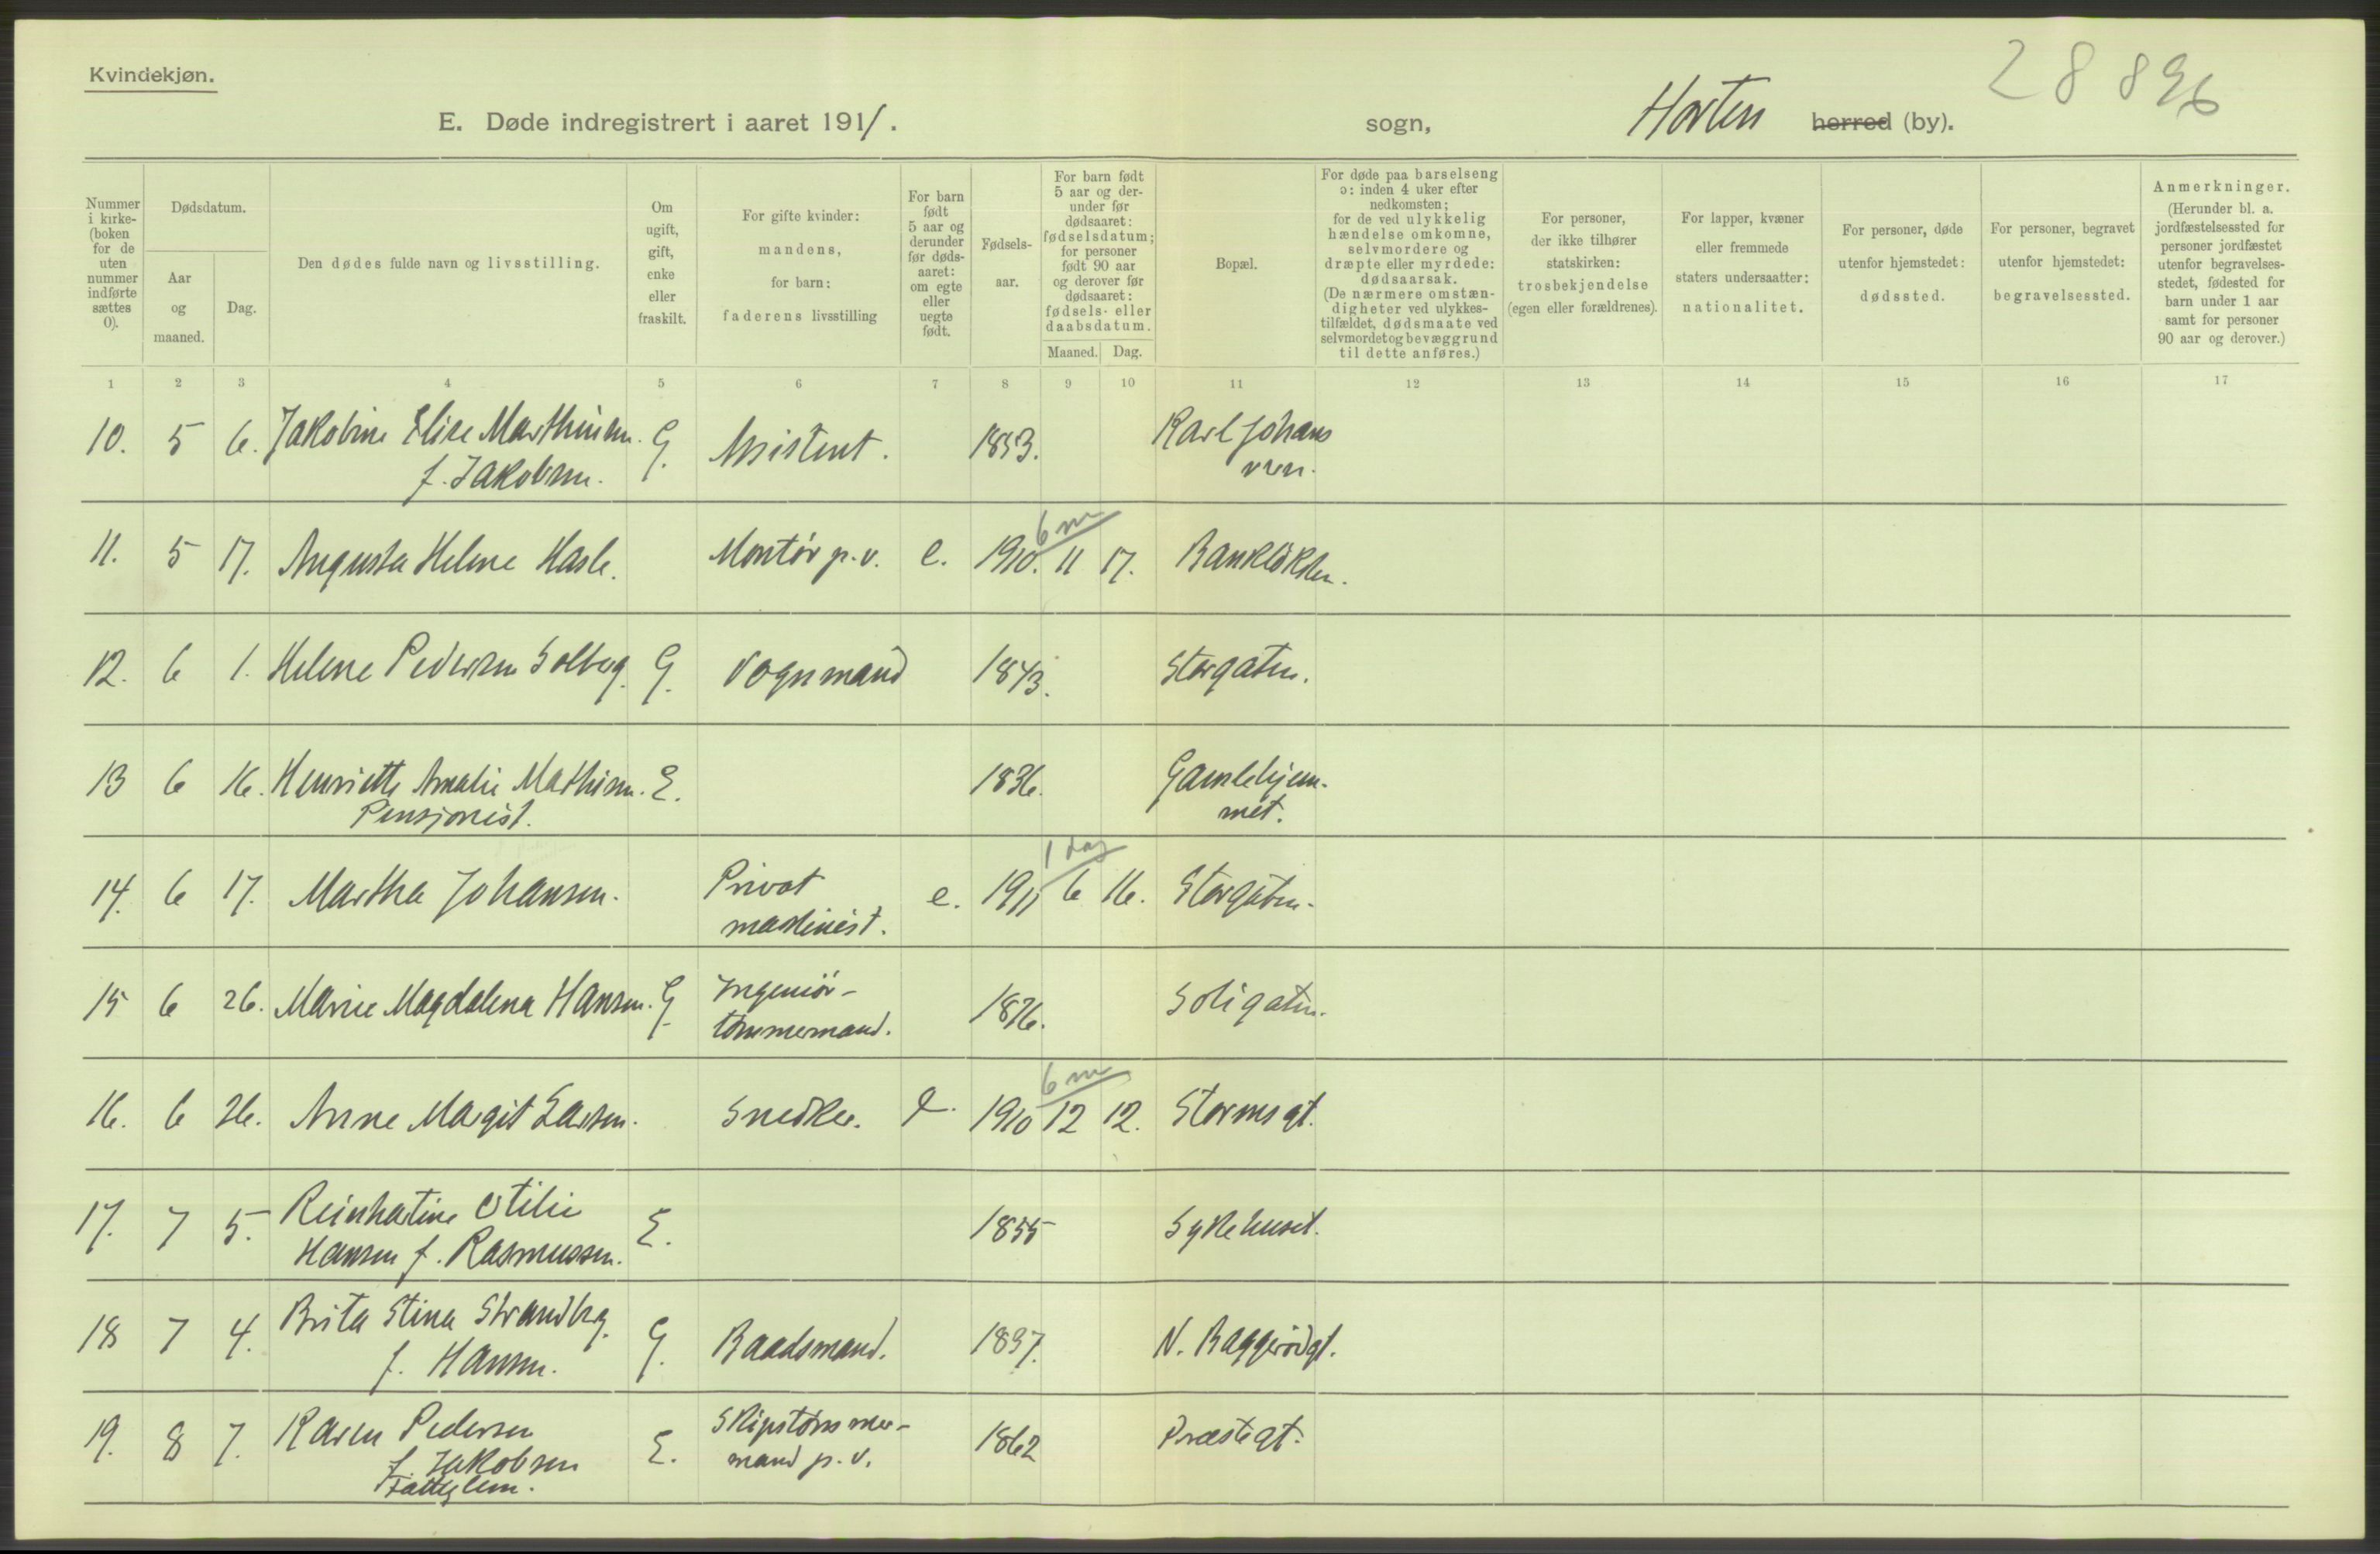 Kvindekjøn.
28 896
E. Døde indregistrert i aaret 1911. sogn, Horten herred (by).
Nummer i kirke-(boken for de uten nummer indførte sættes 0).
Dødsdatum.
Aar og maaned.
Dag.
Den dødes fulde navn og livsstilling.
Om ugift, gift, enke eller fraskilt.
For gifte kvinder: mandens, for barn: faderens livsstilling
For barn født 5 aar og derunder før dødsaaret: om egte eller uegte født.
Fødselsaar.
For barn født 5 aar og derunder før dødsaaret: fødselsdatum; for personer født 90 aar og derover før dødsaaret: fødsels- eller daabsdatum.
Maaned. Dag.
Bopæl.
For døde paa barselseng ɔ: inden 4 uker efter nedkomsten; for de ved ulykkelig hændelse omkomne, selvmordere og dræpte eller myrdede: dødsaarsak. (De nærmere omstændigheter ved ulykkestilfældet, dødsmaate ved selvmordet og bevæggrund til dette anføres.)
For personer, der ikke tilhører statskirken: trosbekjendelse (egen eller forældrenes).
For lapper, kvæner eller fremmede staters undersaatter: nationalitet.
For personer, døde utenfor hjemstedet: dødssted.
For personer, begravet utenfor hjemstedet: begravelsessted.
Anmerkninger. (Herunder bl. a. jordfæstelsessted for personer jordfæstet utenfor begravelsesstedet, fødested for barn under 1 aar samt for personer 90 aar og derover.)
1 2 3 4 5 6 7 8 9 10 11 12 13 14 15 16 17
10. 5 6. Jakobine Elise Marthinsen. G. Assistent. 1853. Karl Johans
f. Jakobsen. væn.
6 m
11. 5 17. Augusta Helene Hasle. Montør p.v. e. 1910. 11 17. Bankløkken.
12. 6 1. Helene Pedersen Solberg. G. Vognmand 1843. Storgaten.
13 6 16. Henriette Amalie Mathisen. E. 1836. Gamlehjem-
Pensjonist. met.
1 dag
14. 6 17. Martha Johansen. Privat e. 1911 6 16. Storgaten.
maskinist.
15 6 26. Marie Magdalena Hansen. G. Ingeniør- 1876. Soligaten.
tømmermand.
6 m
16. 6 26. Anne Margit Larsen. Snedker. e. 1910 12 12. Stormsgt.
17. 7 5. Reinhartine Otilie E. 1855 Sykehuset.
Hansen f. Rasmussen.
18 7 4. Brita Stina Strandbg. G. Baadsmand. 1837. N. Baggerødgt.
f. Hansen.
19. 8 7. Karen Pedersen E. Skipstømmer- 1862 Præstegt.
f. Jakobsen mand p.v.
Fattiglem.